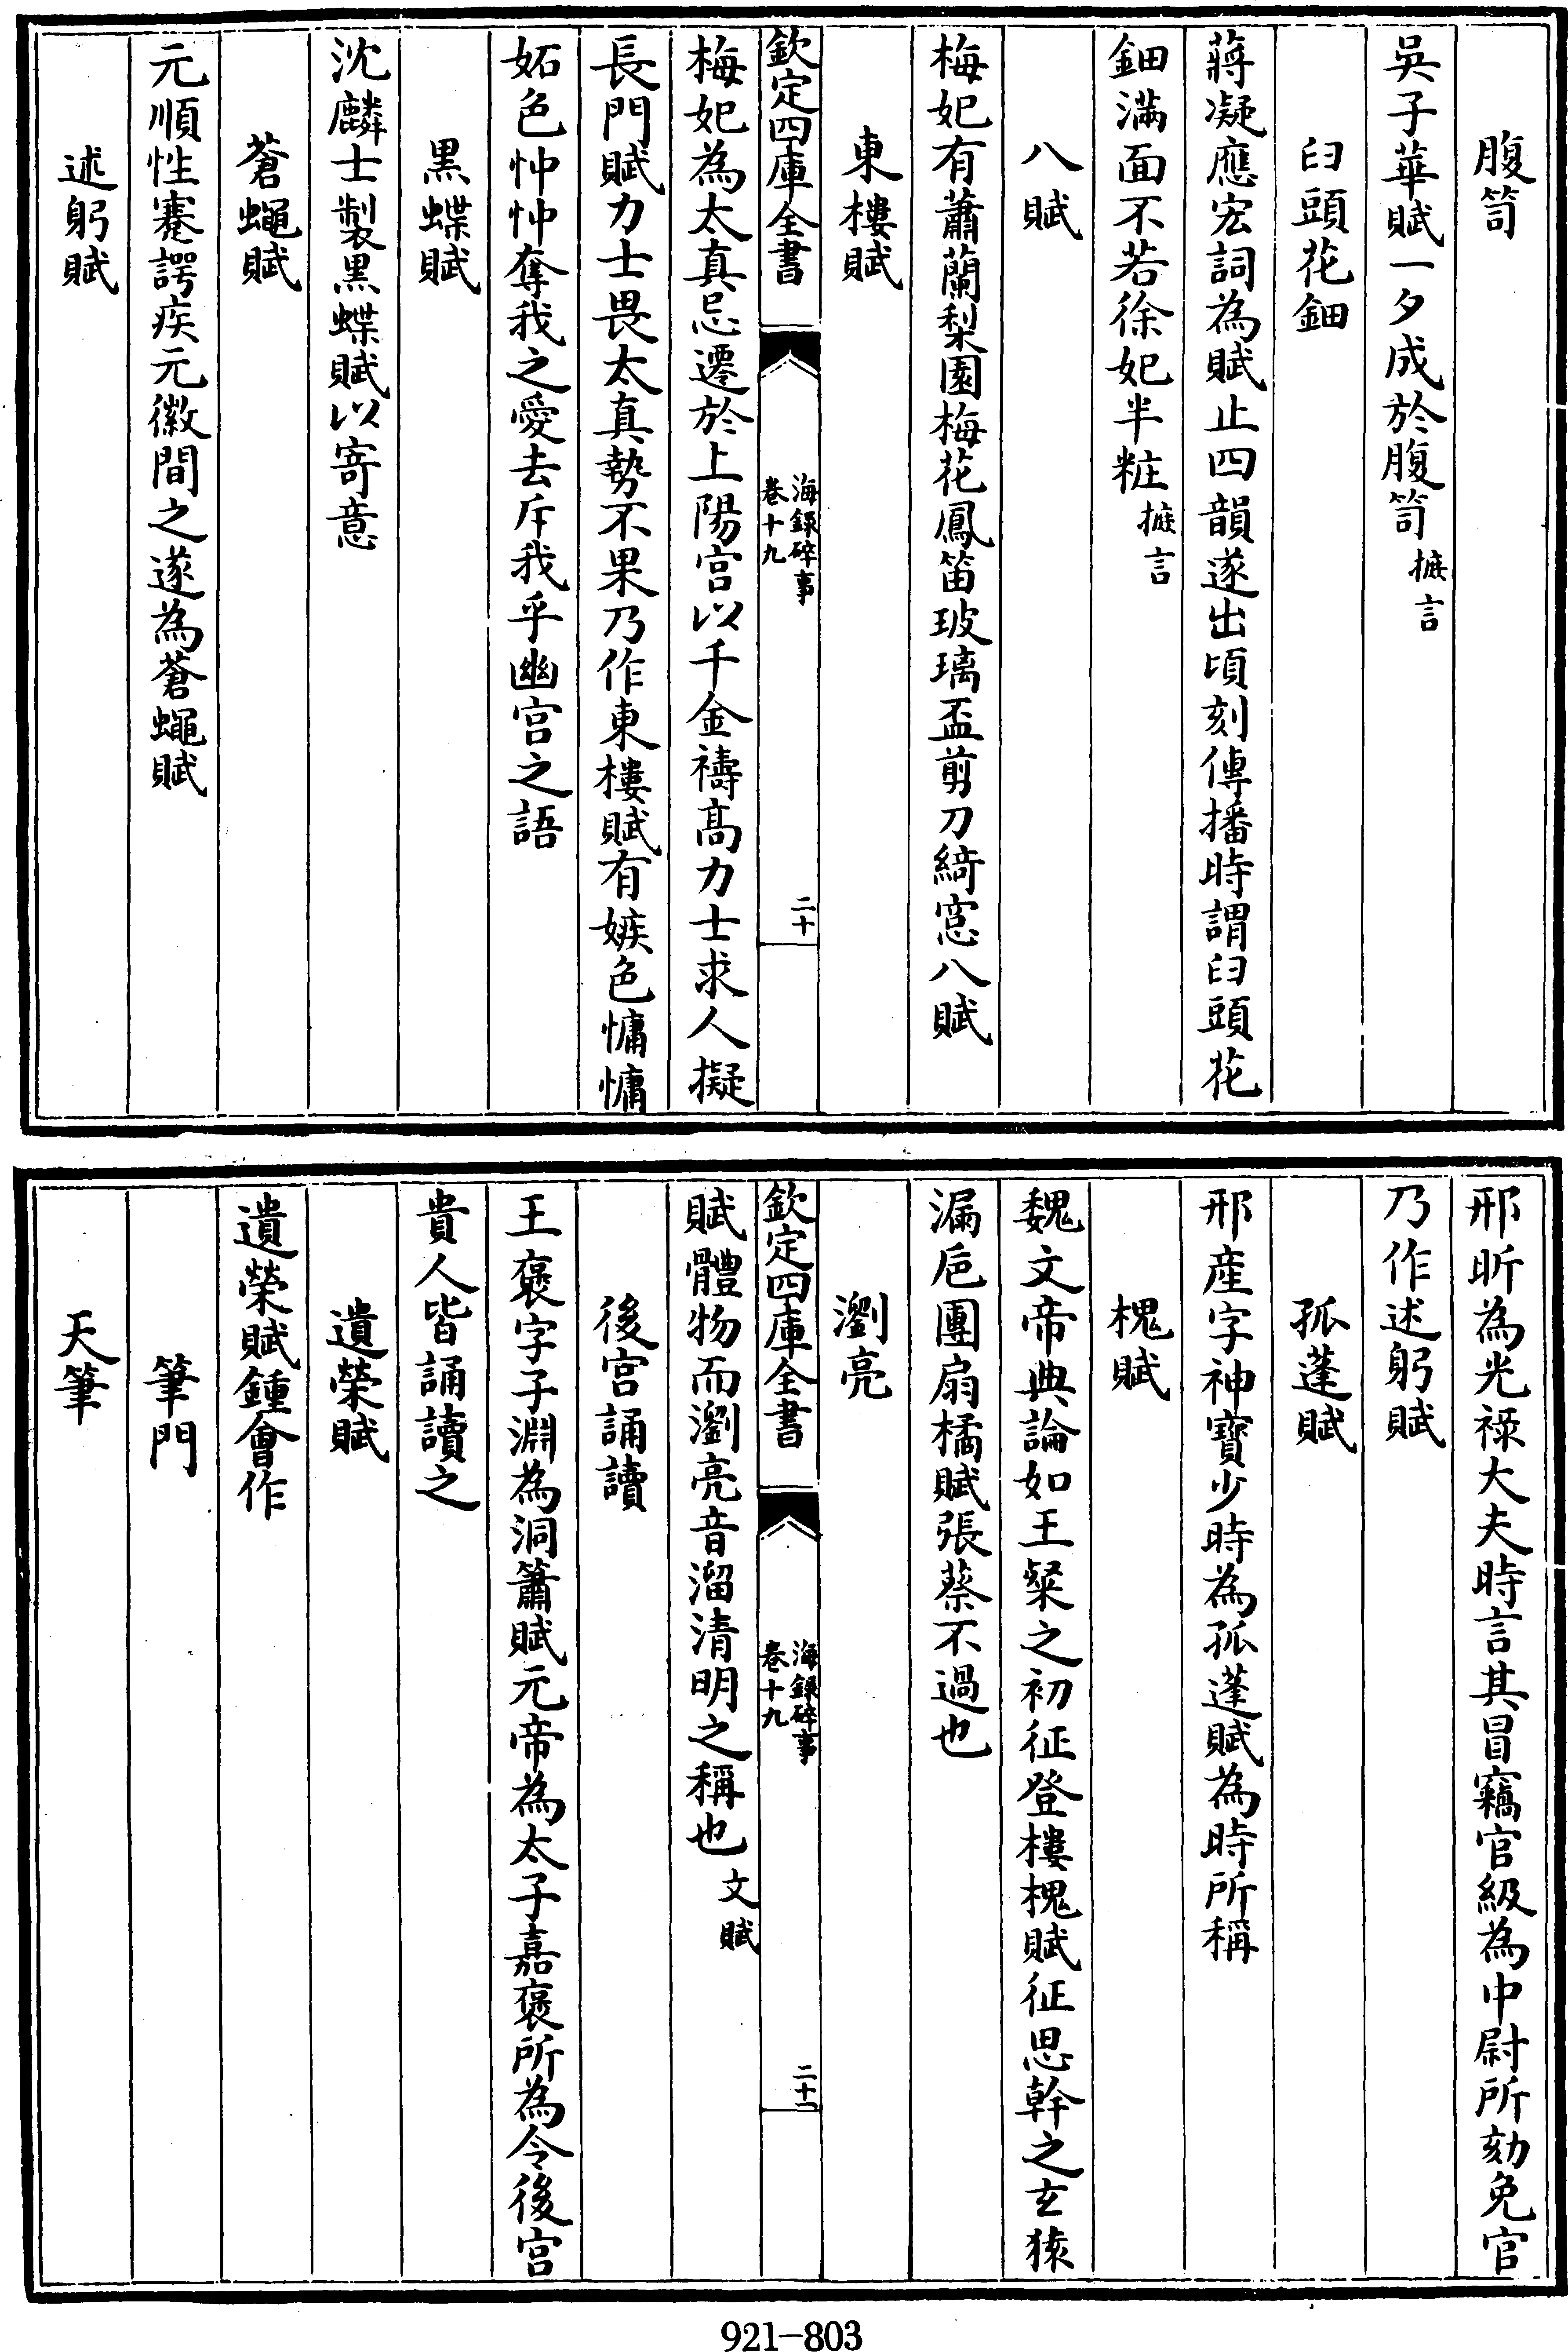 腹笥
吳子華賦一夕成於腹笥摭言
臼頭花鈿
蔣凝應宏詞為賦止四韻遂出頃刻傳播時謂臼頭花
鈿滿面不若徐妃半粧摭言
八賦
梅妃有蕭蘭梨園梅花鳳笛玻璃盃剪刀綺窓八賦
東樓賦
欽定四庫全書
海録碎事
卷十九
二十
梅妃為太真忌遷於上陽宮以千金禱高力士求人擬
長門賦力士畏太真勢不果乃作東樓賦有嫉色慵慵
妬色忡忡奪我之愛去斥我乎幽宮之語
黒蝶賦
沈麟士製黒蝶賦以寄意
蒼蠅賦
元順性蹇諤疾元徽間之遂為蒼蠅賦
述躬賦
邢昕為光祿大夫時言其冒竊官級為中尉所劾免官
乃作述躬賦
孤蓬賦
邢産字神寳少時為孤蓬賦為時所稱
槐賦
魏文帝典論如王粲之初征登樓槐賦征思幹之玄猿
漏巵團扇橘賦張蔡不過也
瀏亮
欽定四庫全書
海録碎事
卷十九
二十一
賦體物而瀏亮音溜清明之稱也文賦
後宮誦讀
王褒字子淵為洞簫賦元帝為太子嘉褒所為令後宮
貴人皆誦讀之
遺榮賦
遺榮賦鍾會作
筆門
天筆
921-803